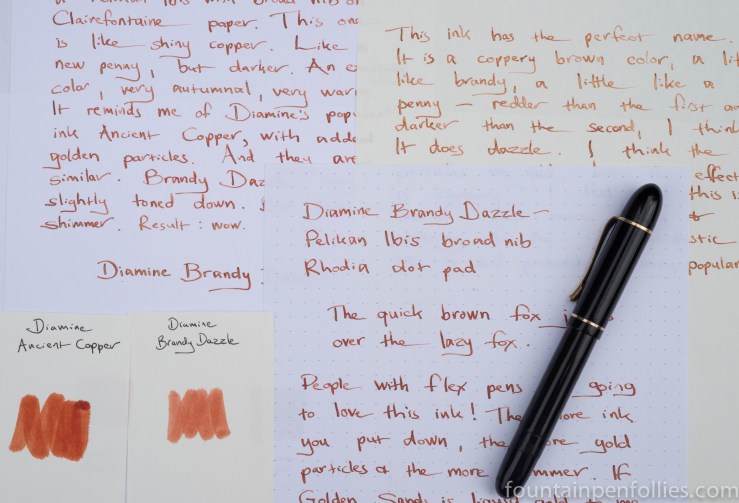 Clairefontaine paper. This one
is like shiny copper. Like
new penny, but darker. An
color, very autumnal, very
It reminds me of Diamine's
ink Ancient Copper, with
golden particles. And they are
similar. Brandy
slightly toned down.
shimmer. Result: wow.
Diamine Brandy
This ink has the perfect name.
It is a coppery brown color, a
like brandy, a little like a
penny – redder than the first
darker than the second, I think
It does dazzle. I think the
effect
this is
popular
Diamine Brandy Dazzle –
Pelikan Ibis broad nib
Rhodia dot pad
The quick brown fox
over the lazy fox.
People with flex pens going
to love this ink! The more ink
you put down, the more gold
particles & the more shimmer. If
Golden Sands is liquid gold
Diamine
Ancient Copper
Diamine
Brandy Dazzle
fountainpenfollies.com